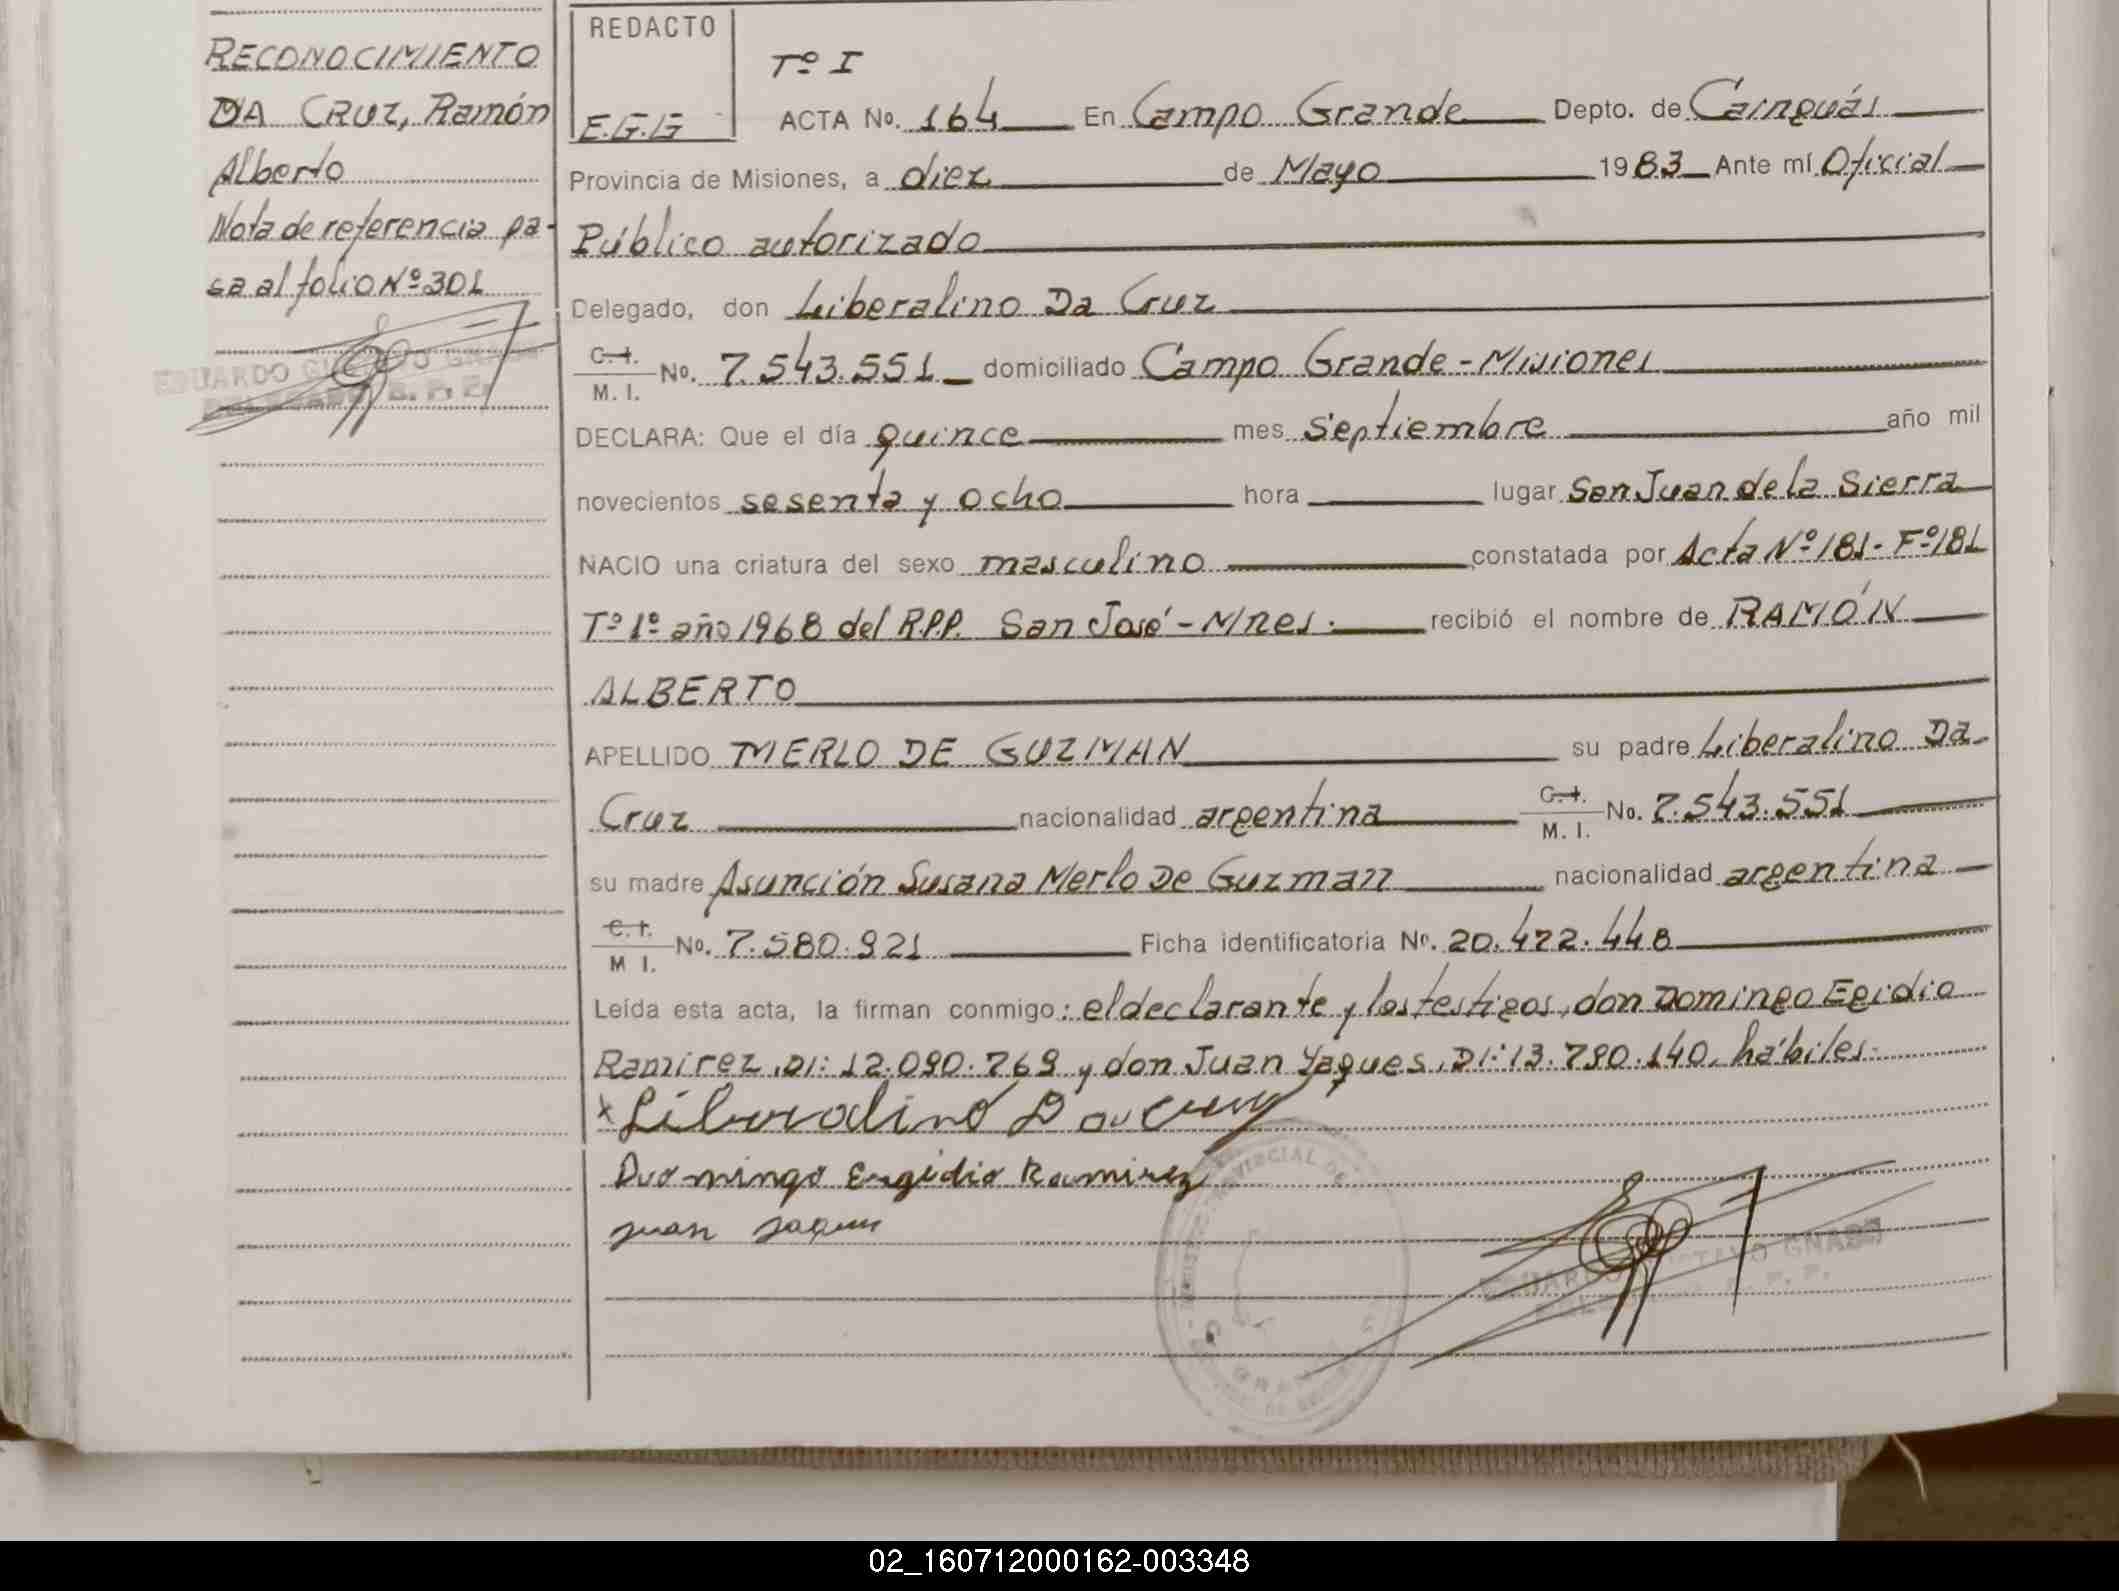 RECONOCIMIENTO
DA CRUZ, Ramón
Alberto
Nota de referencia pa-
sa al folio Nº 301
EDUARDO GUSTAVO GNASS
DELEGADO R. P. P.
REDACTO
E.G.G
Tº I
ACTA No. 164 En Campo Grande Depto. de Cainguás
Provincia de Misiones, a diez de Mayo 1983 Ante mí Oficial
Público autorizado
Delegado, don Liberalino Da Cruz
C. I. M. I. No. 7.543.551 domiciliado Campo Grande - Misiones
DECLARA: Que el día quince mes Septiembre año mil
novecientos sesenta y ocho hora lugar San Juan de la Sierra
NACIO una criatura del sexo masculino constatada por Acta Nº 181 - Fº 181
Tº 1º año 1968 del R.P.P. San José - Mnes. recibió el nombre de RAMÓN
ALBERTO
APELLIDO MERLO DE GUZMAN su padre Liberalino Da
Cruz nacionalidad argentina C. I. M. I. No. 7.543.551
su madre Asunción Susana Merlo De Guzman nacionalidad argentina
C. I. M I. No. 7.580.921 Ficha identificatoria No. 20.422.448
Leída esta acta, la firman conmigo: el declarante y los testigos, don Domingo Egidio
Ramirez, DI: 12.090.769 y don Juan Yaques, DI: 13.790.140, hábiles.
x Liberalino Da Cruz
Duomingo Engidio Ramirez
juan jaques
EDUARDO GUSTAVO GNASS
02_160712000162-003348